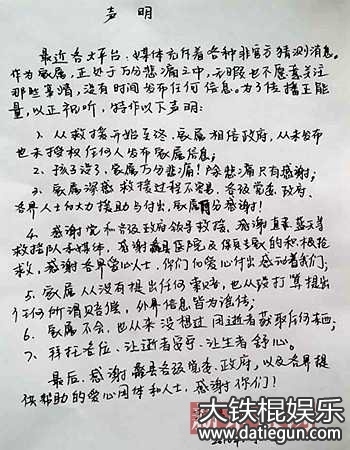 声 明
最近各大平台、媒体充斥着各种非官方猜测消息。
作为家属，正处于万分悲痛之中，无暇也不愿意关注
那些事情，没有时间发布任何信息。为了传播正能
量，以正视听，特作以下声明：
1、从救援开始至终，家属相信政府，从未发布
也未授权任何人发布家属信息；
2、孩子没了，家属万分悲痛！除悲痛只有感谢；
3、家属深感救援过程不容易，各级党委、政府、
各界人士的大力援助与付出，家属万分感谢！
4、感谢党和各级政府领导救援，感谢蓝天等
救援队和媒体，感谢蠡县医院及保定的积极抢
救，感谢各界爱心人士，你们的爱心付出感动着我们；
5、家属从没有提出任何要求，也从没打算提出
任何所谓赔偿，外界信息皆为谣传；
6、家属不会，也从来没想过用逝者获取任何东西；
7、拜托各位，让逝者安宁，让生者舒心。
最后，感谢蠡县各级党委、政府，以及各界提
供帮助的爱心团体和人士，感谢你们！
大铁棍娱乐
www.datiegun.com